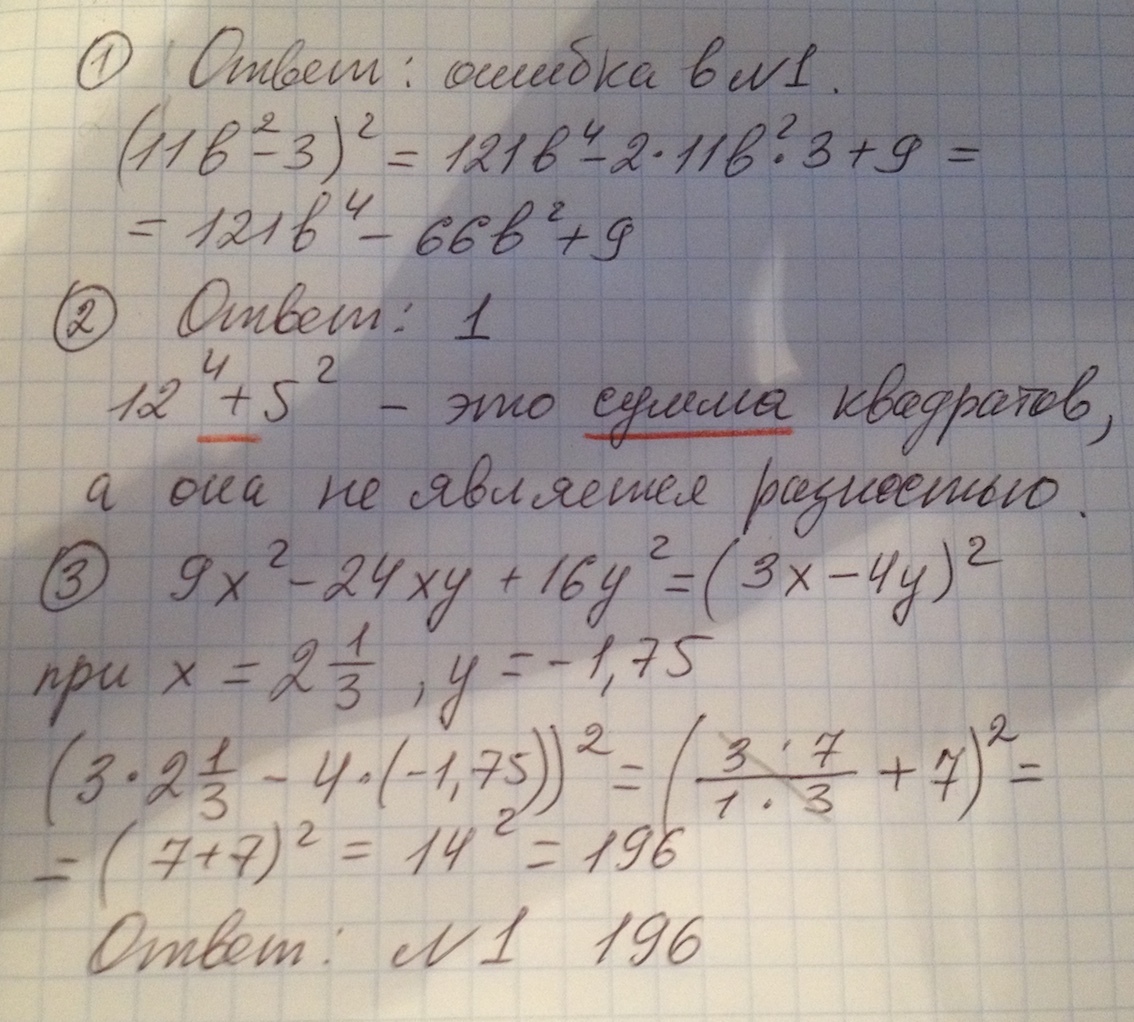 ① Ответ: ошибка в №1.
(11b²-3)² = 121b⁴-2·11b²·3+9 =
= 121b⁴ - 66b²+9
② Ответ: 1
12⁴+5² - это сумма квадратов,
а она не является разностью.
③ 9x²-24xy+16y²=(3x-4y)²
при x = 2 1/3, y = -1,75
(3·2 1/3 - 4·(-1,75))² = ((3·7)/(1·3) + 7)² =
= (7+7)² = 14² = 196
Ответ: №1 196